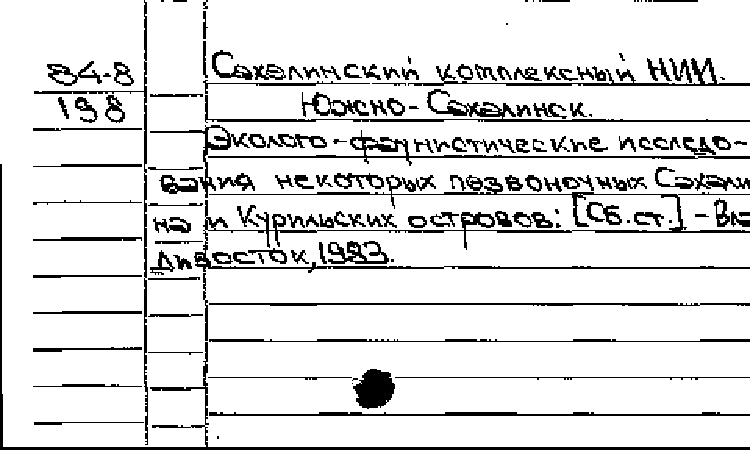 84-8 Сахалинский комплексный НИИ.
198 Южно-Сахалинск.
Эколого-фаунистические исследо-
вания некоторых позвоночных Сахали
на и Курильских островов: [Сб.ст.] - Вла
дивосток, 1983.